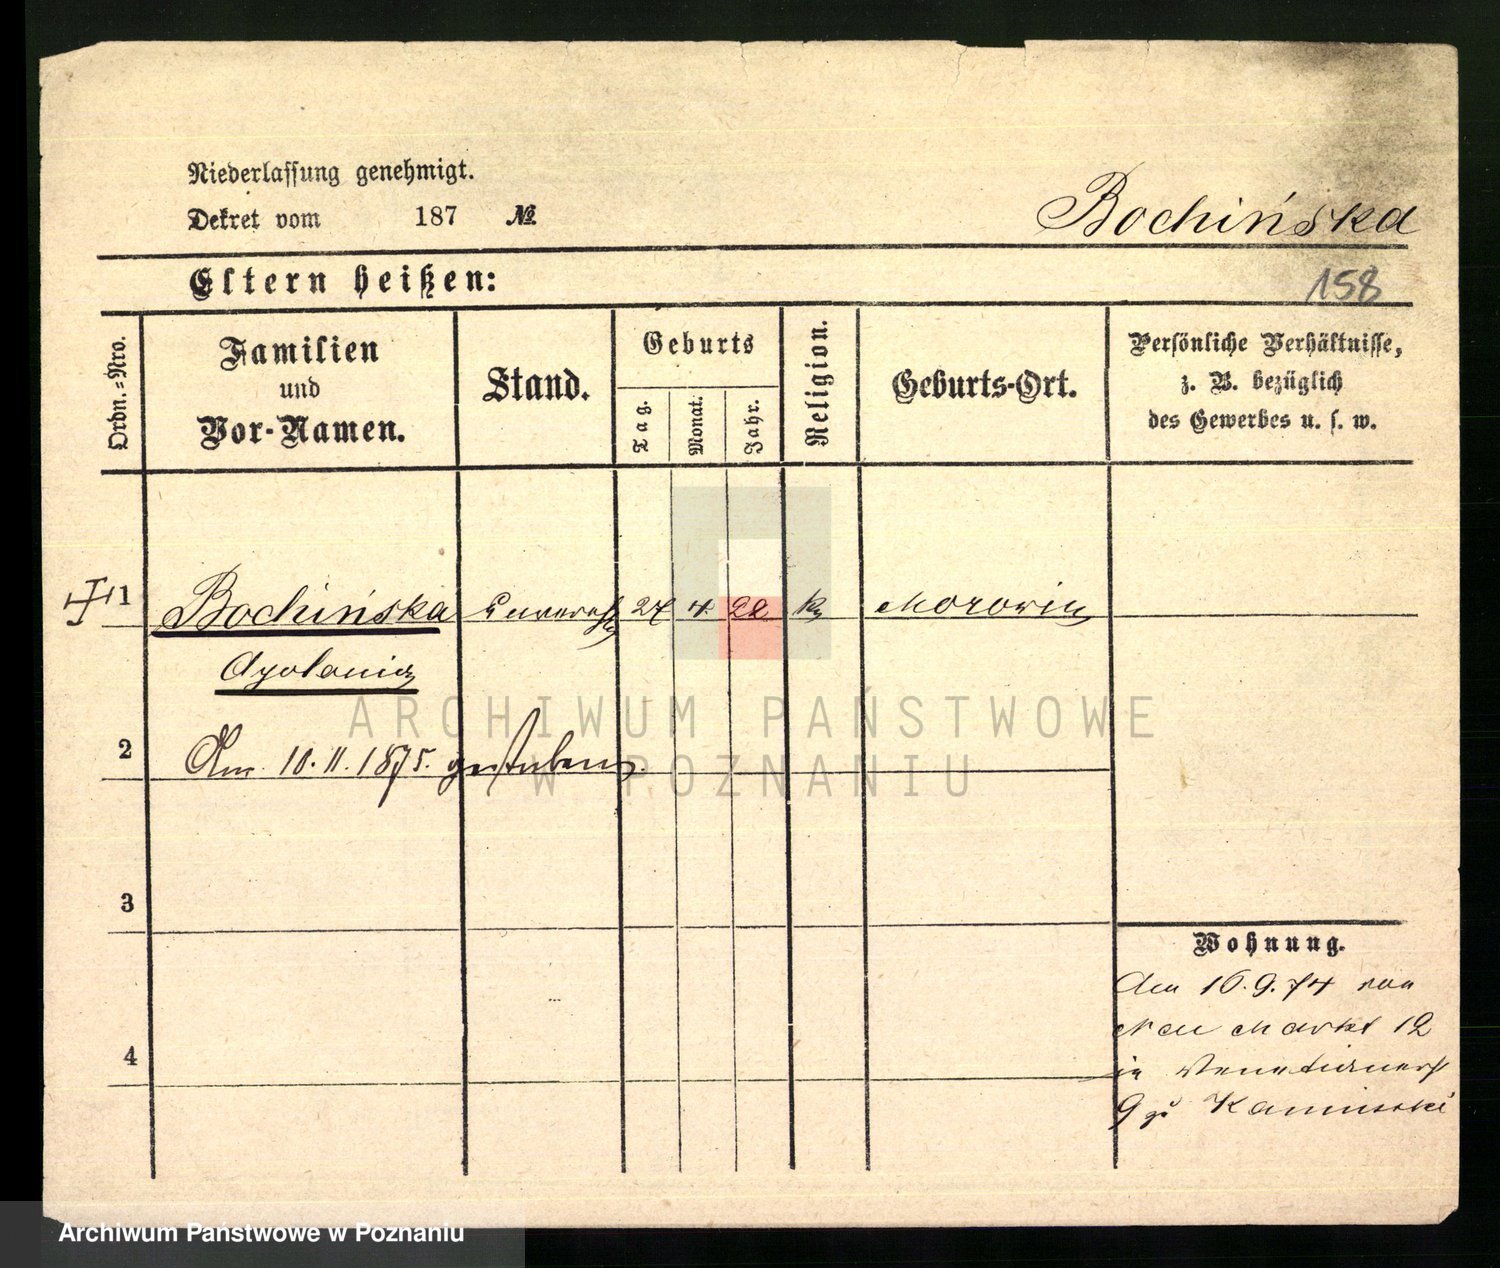 Niederlassung genehmigt.
Dekret vom 187 №
Bochińska
Eltern heißen:
158
Ordn.-Nro.
Familien
und
Vor-Namen.
Stand.
Geburts
Tag.
Monat.
Jahr.
Religion.
Geburts-Ort.
Persönliche Verhältnisse,
z. B. bezüglich
des Gewerbes u. s. w.
1 Bochińska 27 4. 28
Apolonia
ARCHIWUM PAŃSTWOWE
W POZNANIU
2 Am 10.11.1875. gestorben.
3
Wohnung.
Am 16.9.74 von
Neu Markt 12
4
in Venetianerst
9 zu Kaminski
Archiwum Państwowe w Poznaniu